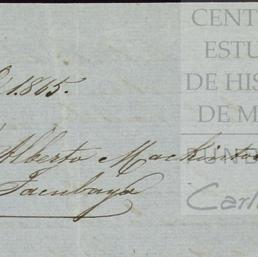 CENT
ESTU
DE HIS
DE M
1865.
Alberto Mackintos
Tacubaya
FUND
Carl